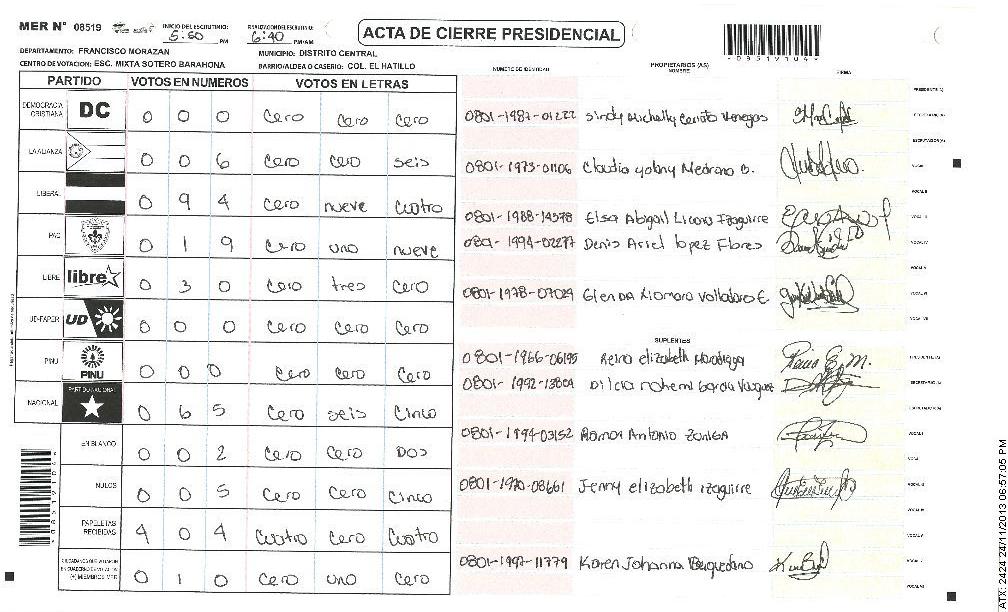 MER N° 08519 INICIO DEL ESCRUTINIO: 5:50 PM FINALIZACION DEL ESCRUTINIO: 6:40 PM/AM
ACTA DE CIERRE PRESIDENCIAL
DEPARTAMENTO: FRANCISCO MORAZAN MUNICIPIO: DISTRITO CENTRAL
CENTRO DE VOTACION: ESC. MIXTA SOTERO BARAHONA BARRIO/ALDEA O CASERIO: COL. EL HATILLO
PARTIDO VOTOS EN NUMEROS VOTOS EN LETRAS
DEMOCRACIA CRISTIANA DC 0 0 0 Cero Cero Cero
LA ALIANZA 0 0 6 Cero Cero seis
LIBERAL 0 9 4 Cero nueve Cuatro
PAC 0 1 9 Cero uno nueve
LIBRE libre 0 3 0 Cero tres Cero
UD-FAPER UD 0 0 0 Cero Cero Cero
PINU PINU 0 0 0 Cero Cero Cero
NACIONAL PARTIDO NACIONAL 0 6 5 Cero seis Cinco
EN BLANCO 0 0 2 Cero Cero Dos
NULOS 0 0 5 Cero Cero Cinco
PAPELETAS RECIBIDAS 4 0 4 Cuatro Cero Cuatro
CIUDADANOS QUE VOTARON EN CUADERNO DE VOTACION (+) MIEMBROS MER 0 1 0 Cero uno Cero
NUMERO DE IDENTIDAD PROPIETARIOS (AS) NOMBRE FIRMA
0801-1987-01222 Sindy Michelly
0801-1973-01106 Claudia Yolany Medrano B.
0801-1988-14578 Elsa Abigail
0801-1994-02277 Denis Ariel Lopez Flores
0801-1978-07029 Glenda Xiomara
SUPLENTES
0801-1966-06195 Reina Elizabeth
0801-1992-13804 Dilcia Nohemi Garcia
0801-1994-03152 Ramon Antonio Zuniga
0801-1970-08661 Jenny Elizabeth Izaguirre
0801-1997-11779 Karen Johanna
ATX: 2424 24/11/2013 06:57:05 PM